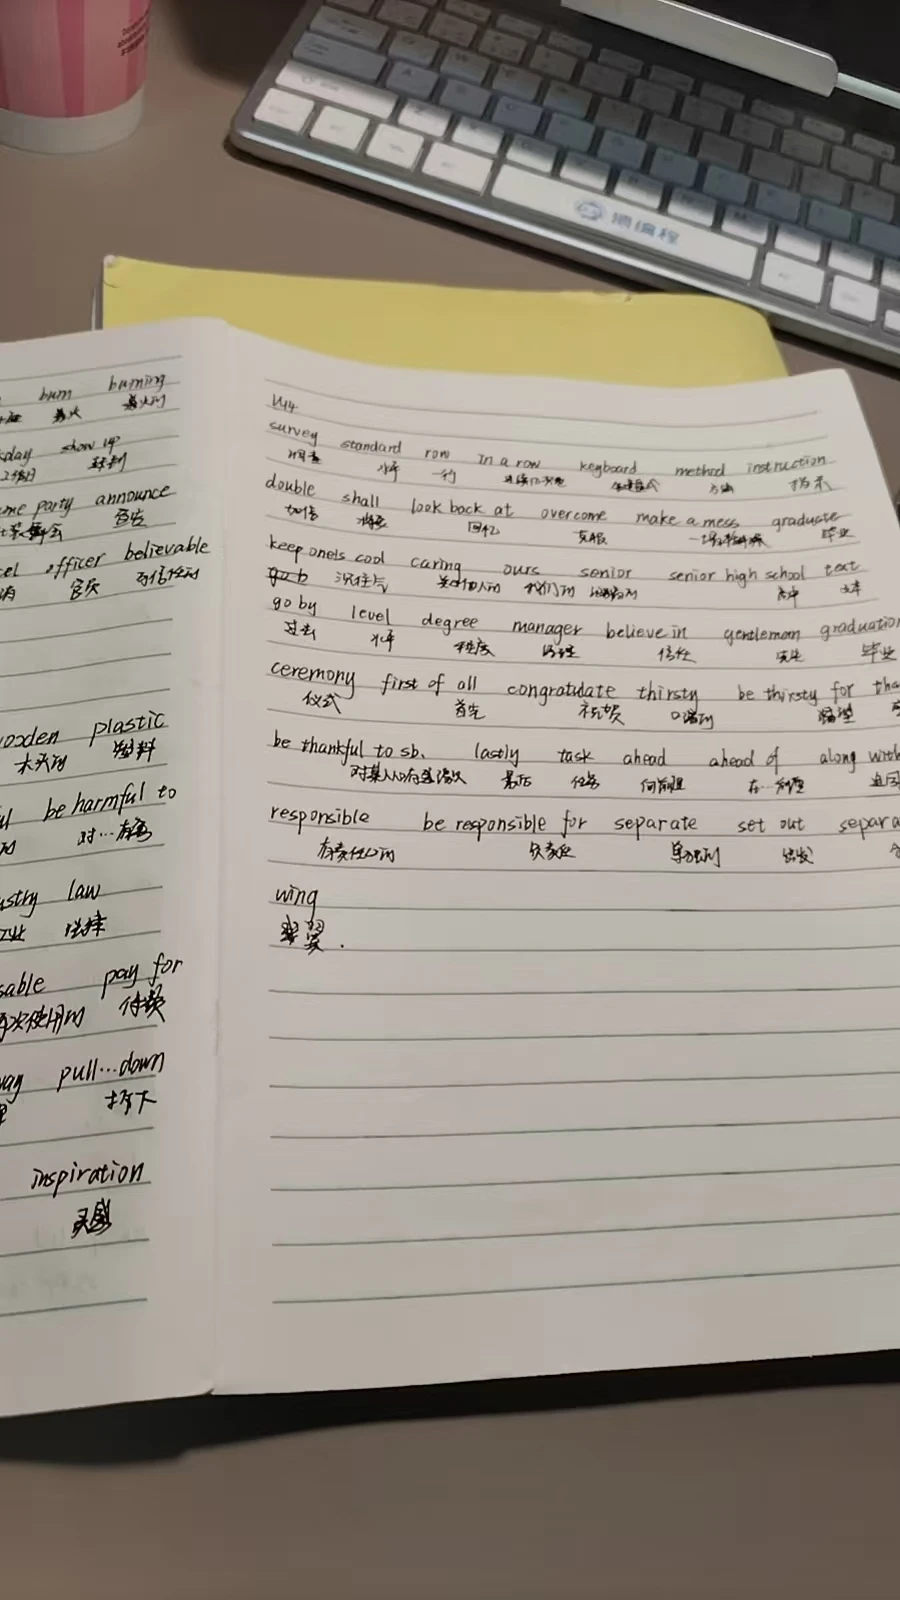 猿编程
burn burning
着火 着火的
show up
announce
宣告
officer believable
官员 可信任的
plastic
木头的 塑料
be harmful to
对…有害
law
法律
pay for
付款
pull…down
拆下
inspiration
灵感
U14
survey standard row in a row keyboard method instruction
调查 水平 一行 方法 指示
double shall look back at overcome make a mess graduate
加倍 将要 回忆 克服 毕业
keep one's cool caring ours senior senior high school text
沉住气 关心他人的 我们的 高中 文本
go by level degree manager believe in gentleman graduation
过去 水平 程度 经理 信任 先生 毕业
ceremony first of all congratulate thirsty be thirsty for
仪式 首先 祝贺 口渴的 渴望
be thankful to sb. lastly task ahead ahead of along with
对某人心存感激 最后 任务 向前面 在…前面
responsible be responsible for separate set out
有责任心的 负责任 单独的 出发
wing
翼.